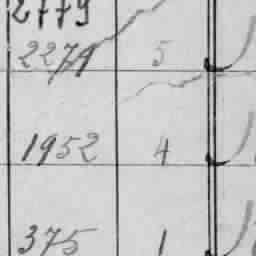 2779
2279 5
1952 4
375 1